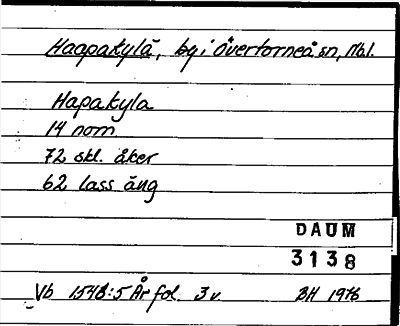 Haapakylä, by i Övertorneå sn, Nbl.
Hapakyla
14 nom.
72 skl. åker
62 lass äng
DAUM
3138
Vb 1548:5 År fol. 3 v. BH 1976